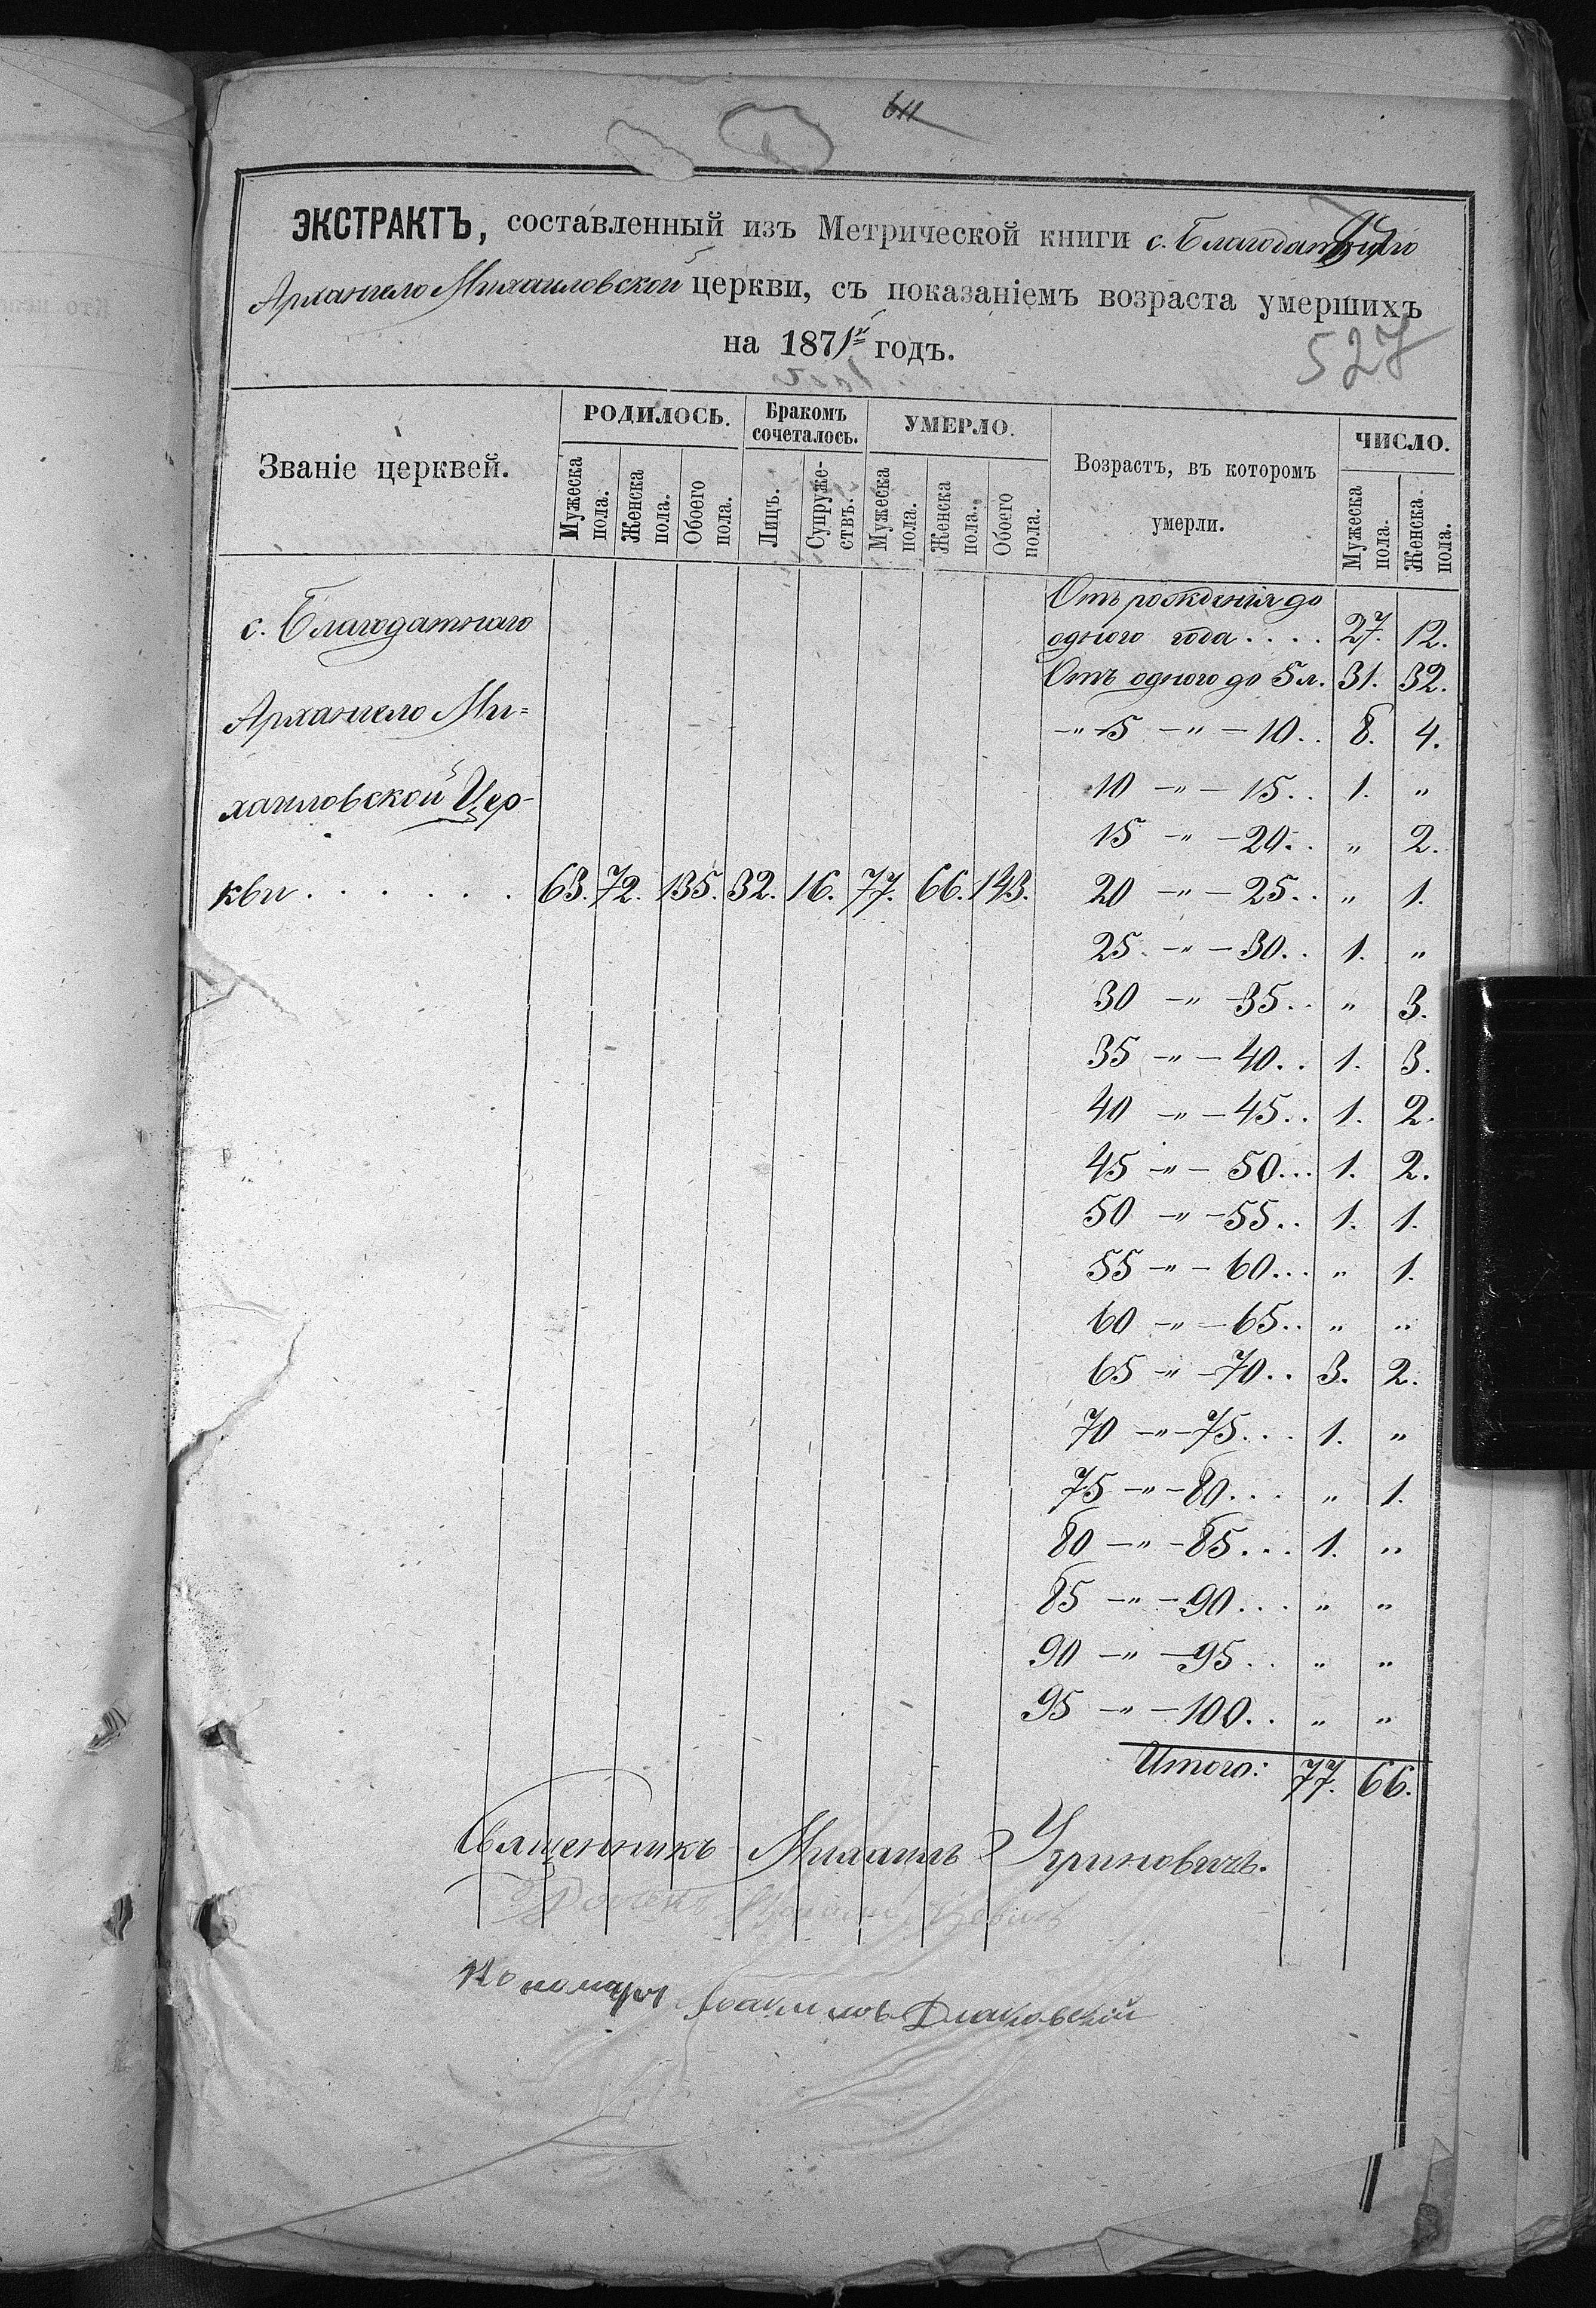 611
ЭКСТРАКТЪ, составленный изъ Метрической книги с. Благодатнаго
Архангело Михаиловской церкви, съ показаніемъ возраста умершихъ
на 1871й годъ.
527
Званіе церквей.
РОДИЛОСЬ.
Бракомъ сочеталось.
УМЕРЛО.
Возрастъ, въ которомъ умерли.
ЧИСЛО.
Мужеска пола.
Женска пола.
Обоего пола.
Лицъ.
Супружествъ.
Мужеска пола.
Женска пола.
Обоего пола.
Мужеска пола.
Женска пола.
с. Благодатнаго
Архангело Ми=
хаиловской Цер-
кви . . . . . . 63. 72. 135. 32. 16. 77. 66. 143.
Отъ рожденія до
одного года . . . . 27. 12.
Отъ одного до 5 л. 31. 32.
-"- 5 -"- 10 . . 8. 4.
10 -"- 15 . . 1. "
15 -"- 20 . . " 2.
20 -"- 25 . . " 1.
25 -"- 30 . . 1. "
30 -"- 35 . . " 3.
35 -"- 40 . . 1. 3.
40 -"- 45 . . 1. 2.
45 -"- 50 . . . 1. 2.
50 -"- 55 . . 1. 1.
55 -"- 60 . . . " 1.
60 -"- 65 . . " "
65 -"- 70 . . 3. 2.
70 -"- 75 . . . 1. "
75 -"- 80 . . . " 1.
80 -"- 85 . . . 1. "
85 -"- 90 . . . " "
90 -"- 95 . . " "
95 -"- 100 . . " "
Итого: 77. 66.
Священникъ Михаилъ Угриновичъ.
Пономарь Іоакимъ Діаковскій